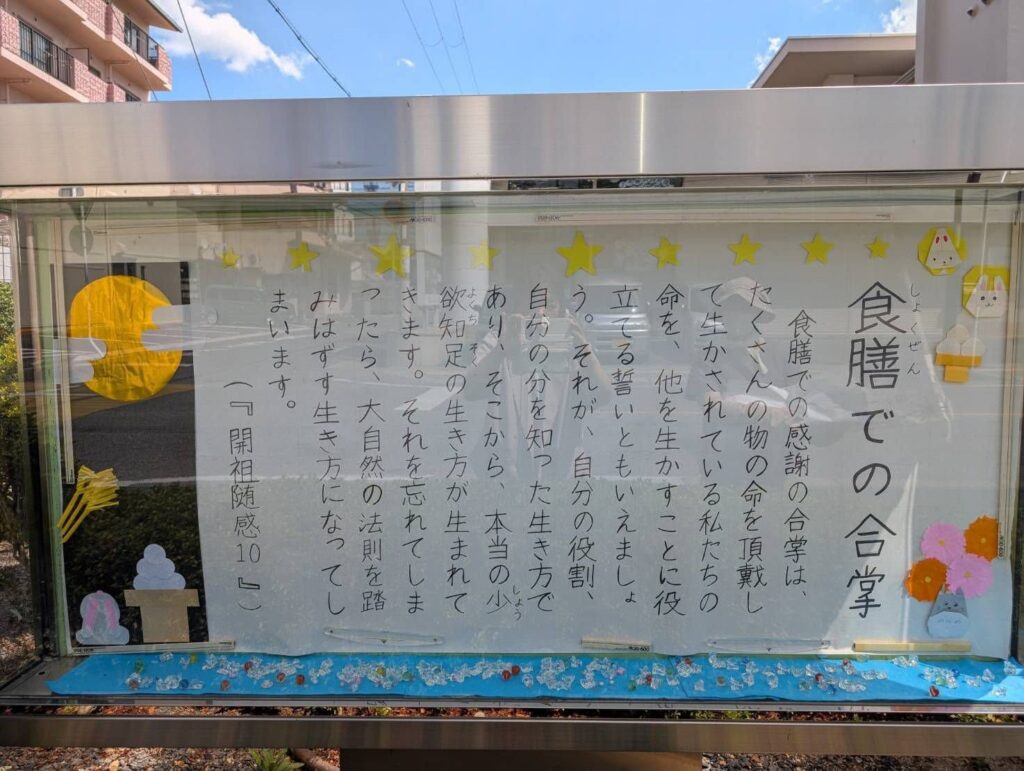 しょくぜん
食膳での合掌
食膳での感謝の合掌は、
たくさんの物の命を頂戴し
て生かされている私たちの
命を、他を生かすことに役
立てる誓いともいえましょ
う。それが、自分の役割、
自分の分を知った生き方で
しょう
あり、そこから、本当の少
よくちそく
欲知足の生き方が生まれて
きます。それを忘れてしま
ったら、大自然の法則を踏
みはずす生き方になってし
まいます。
（『開祖随感10』）